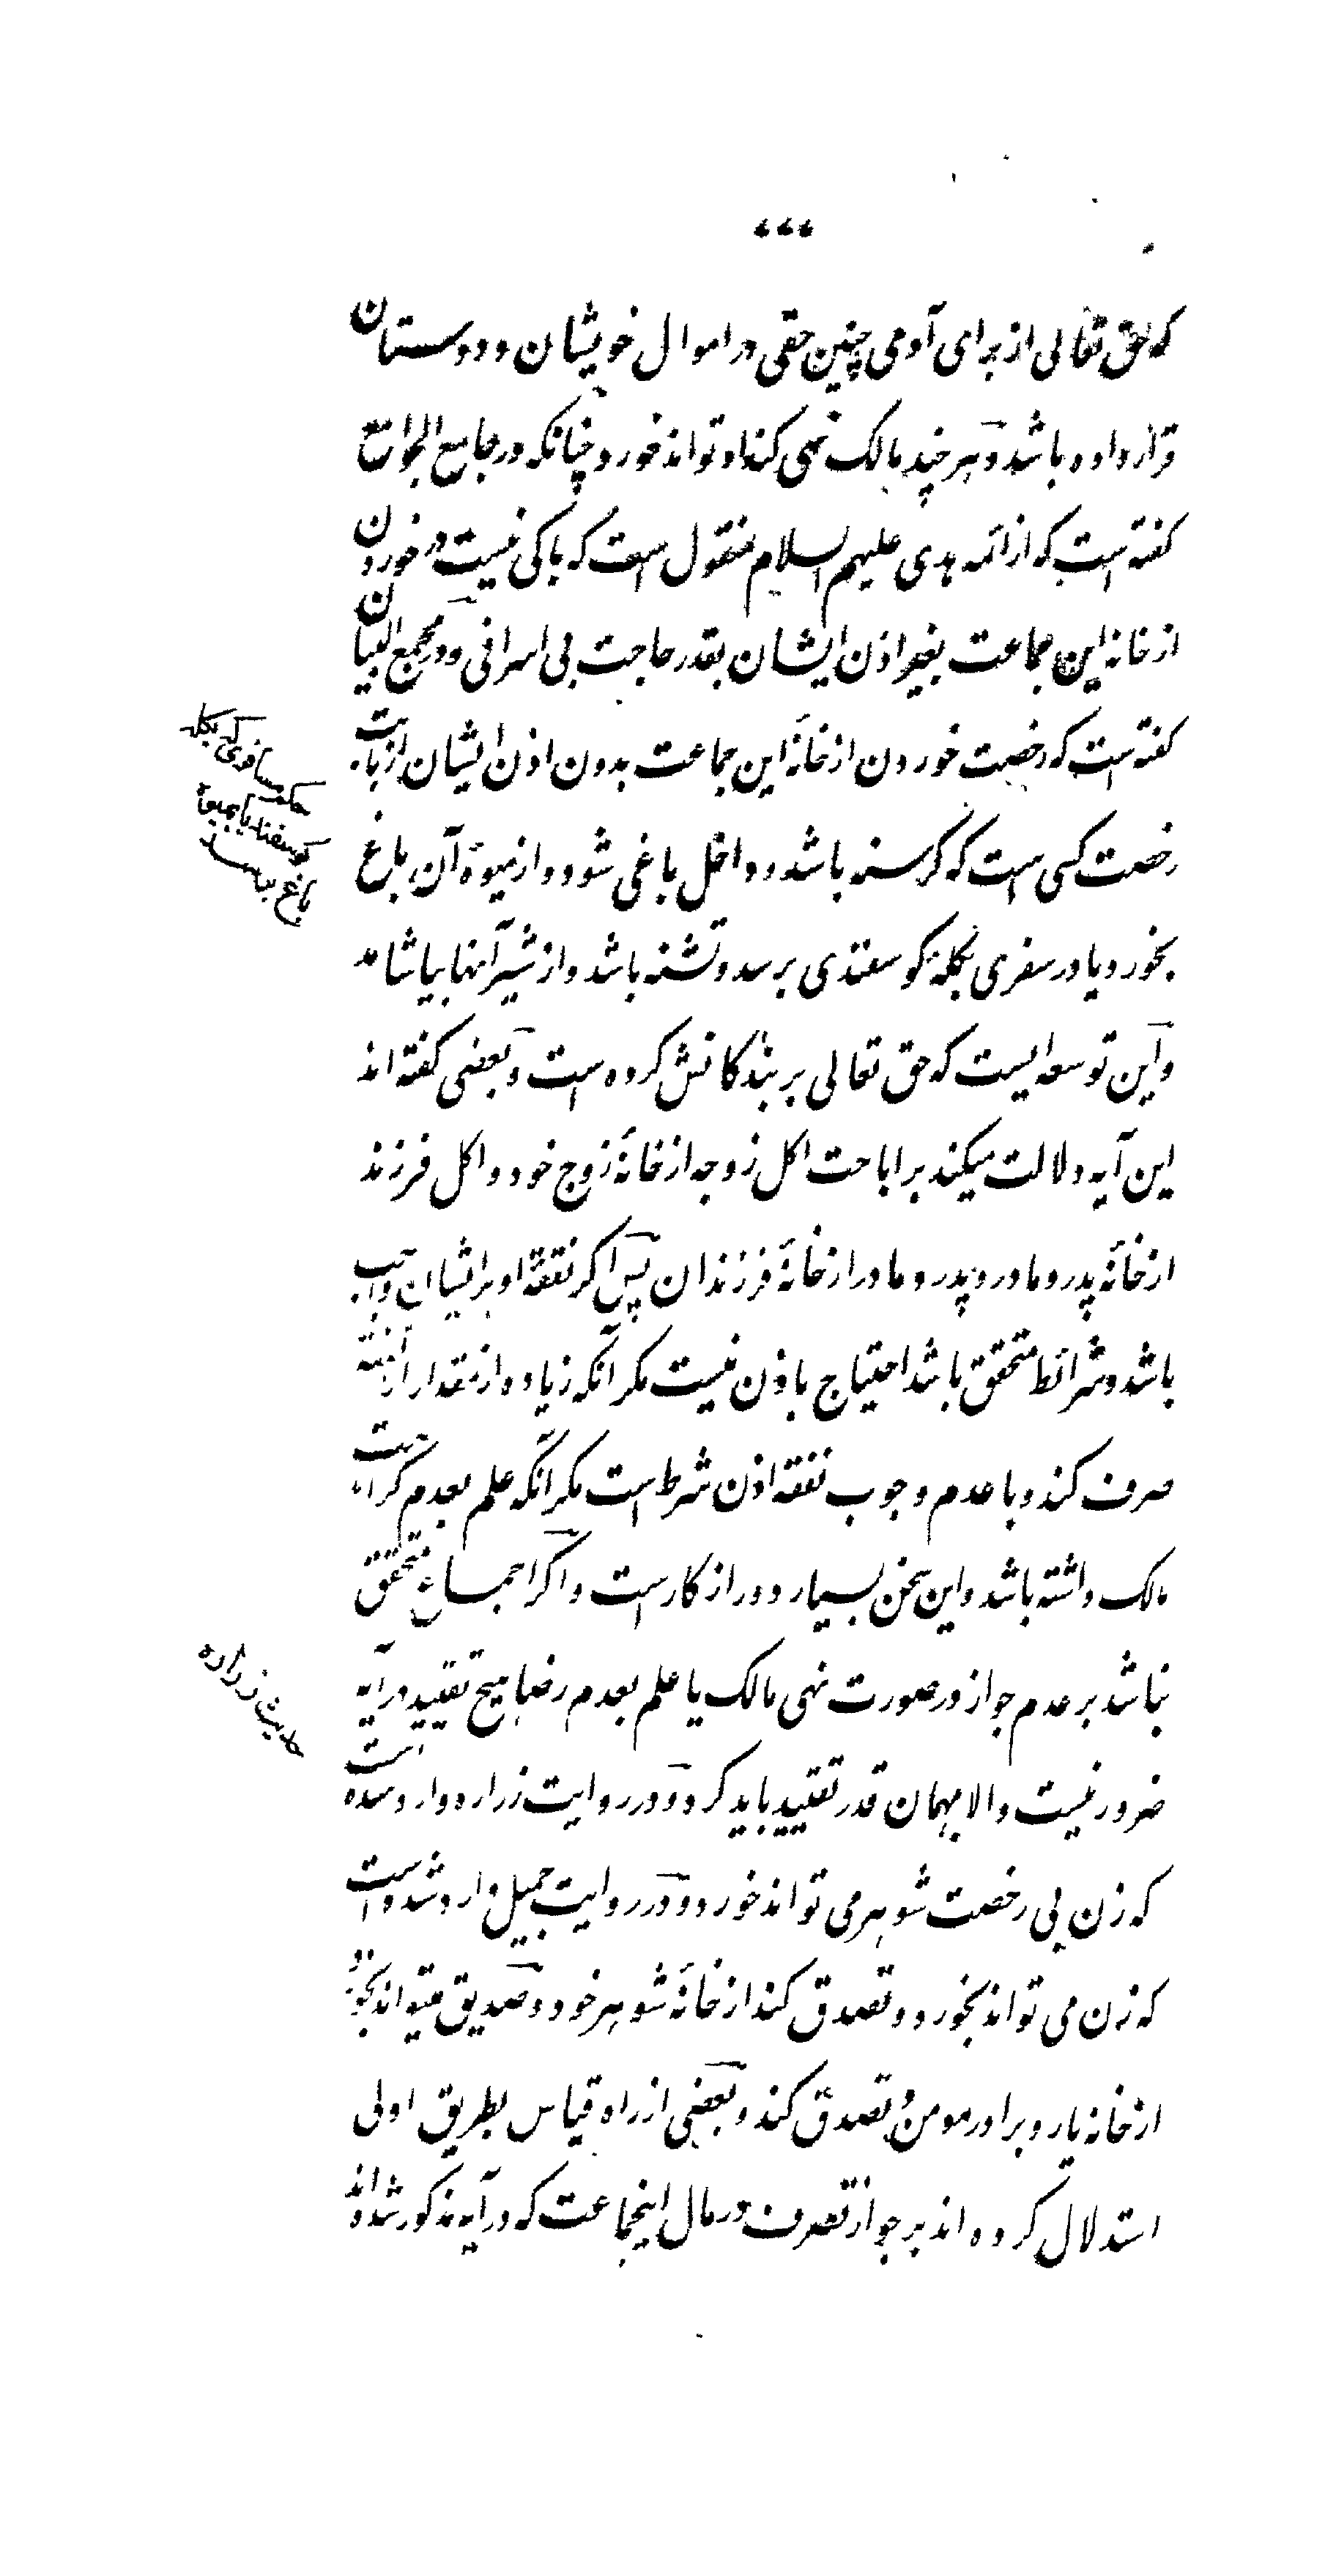 که حق تعالی از برای آدمی چنین حقی در اموال خویشان و دوستان
قرار داده باشد و هر چند مالک نهی کند او تواند خورد چنانکه در جامع الجوامع
کفته است که از ائمه هدی علیهم السلام منقول است که باکی نیست در خوردن
از خانه این جماعت بغیر اذن ایشان بقدر حاجت بی اسرافی و در مجمع البیان
کفته است که رخصت خوردن از خانهٔ این جماعت بدون اذن ایشان از بابت
رخصت کسی است که کرسنه باشد و داخل باغی شود و از میوهٔ آن باغ
بخورد یا در سفری بکلهٔ کوسفندی برسد و تشنه باشد و از شیر آنها بیاشامد
و این توسعه ایست که حق تعالی بر بندکانش کرده است و بعضی کفته اند
این آیه دلالت میکند بر اباحت اکل زوجه از خانهٔ زوج خود و اکل فرزند
از خانهٔ پدر و مادر و پدر و مادر از خانهٔ فرزندان پس اکر نفقهٔ او بر ایشان واجب
باشد و شرائط متحقق باشد احتیاج باذن نیست مکر آنکه زیاده از مقدار نفقه
صرف کند و با عدم وجوب نفقه اذن شرط است مکر آنکه علم بعدم کراهت
مالک داشته باشد و این سخن بسیار دور از کار است و اکر اجماع متحقق
نباشد بر عدم جواز در صورت نهی مالک یا علم بعدم رضا هیچ تقیید در آیه
ضرور نیست والا بهمان قدر تقیید باید کرد و در روایت زراره وارد شده است
که زن بی رخصت شوهر می تواند خورد و در روایت جمیل وارد شده است
که زن می تواند بخورد و تصدق کند از خانهٔ شوهر خود و صدیق میتواند بخورد
از خانه یار و برادر مومن و تصدق کند و بعضی از راه قیاس بطریق اولی
استدلال کرده اند بر جواز تصرف در مال اینجماعت که در آیه مذکور شده اند
حکم مسافری که بکله
کوسفند یا بمیوهٔ
باغ برسد
حدیث زراره